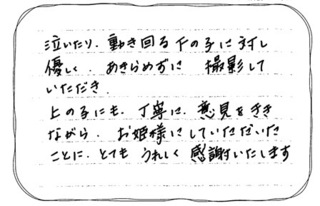 泣いたり、動き回る下の子に対し
優しく、あきらめずに 撮影して
いただき、
上の子にも、丁寧に、意見をきき
ながら、お姫様にしていただいた
ことに、とても うれしく 感謝いたします